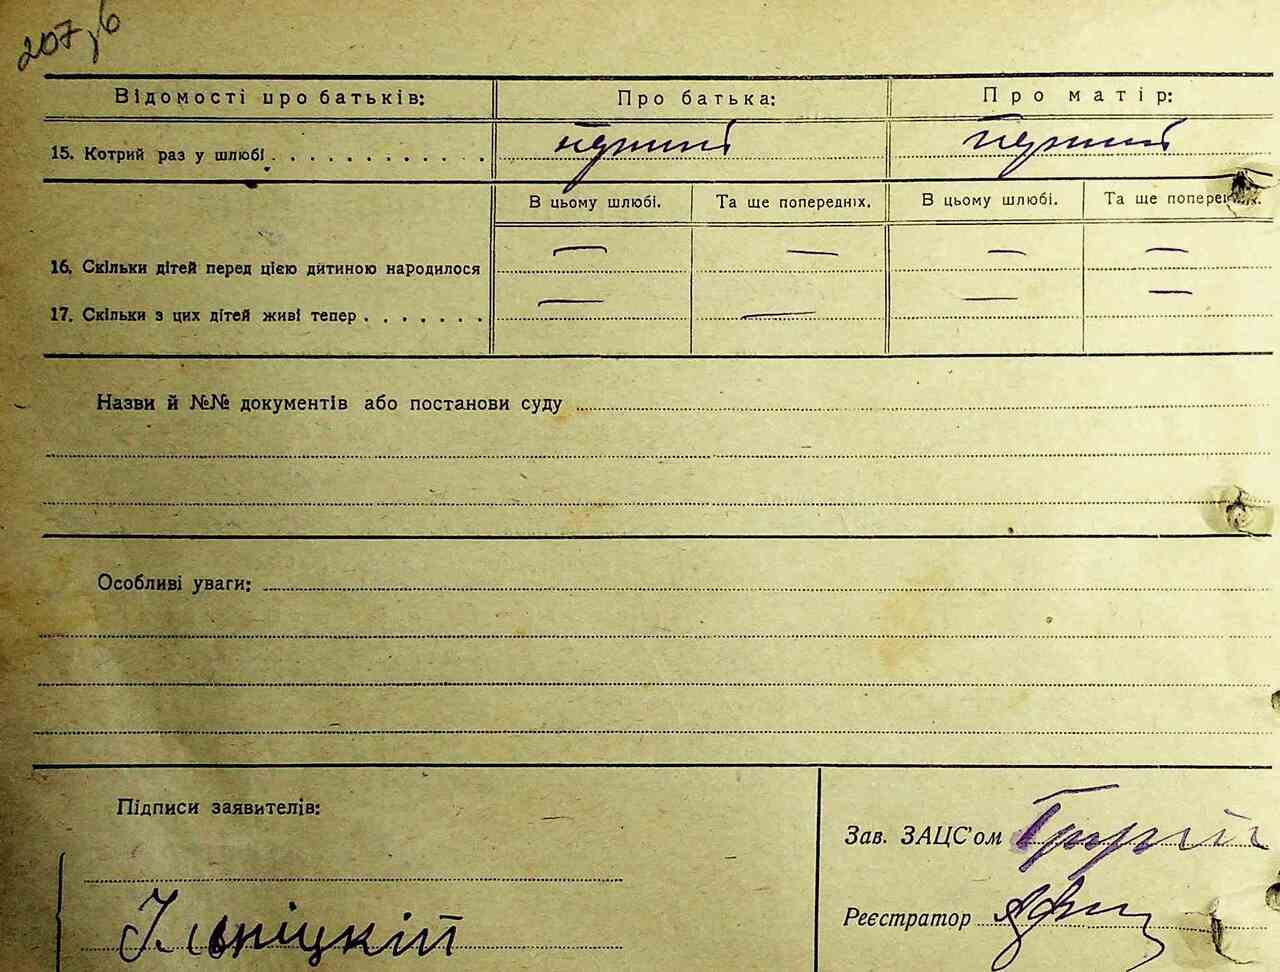 207
Відомості про батьків: Про батька: Про матір:
15. Котрий раз у шлюбі . . . . . . . . . . . . перший перший
В цьому шлюбі. Та ще попередніх. В цьому шлюбі. Та ще попередніх.
16. Скільки дітей перед цією дитиною народилося — — — —
17. Скільки з цих дітей живі тепер . . . . . . . — — — —
Назви й №№ документів або постанови суду
Особливі уваги:
Підписи заявителів:
Зав. ЗАЦС'ом
Реєстратор